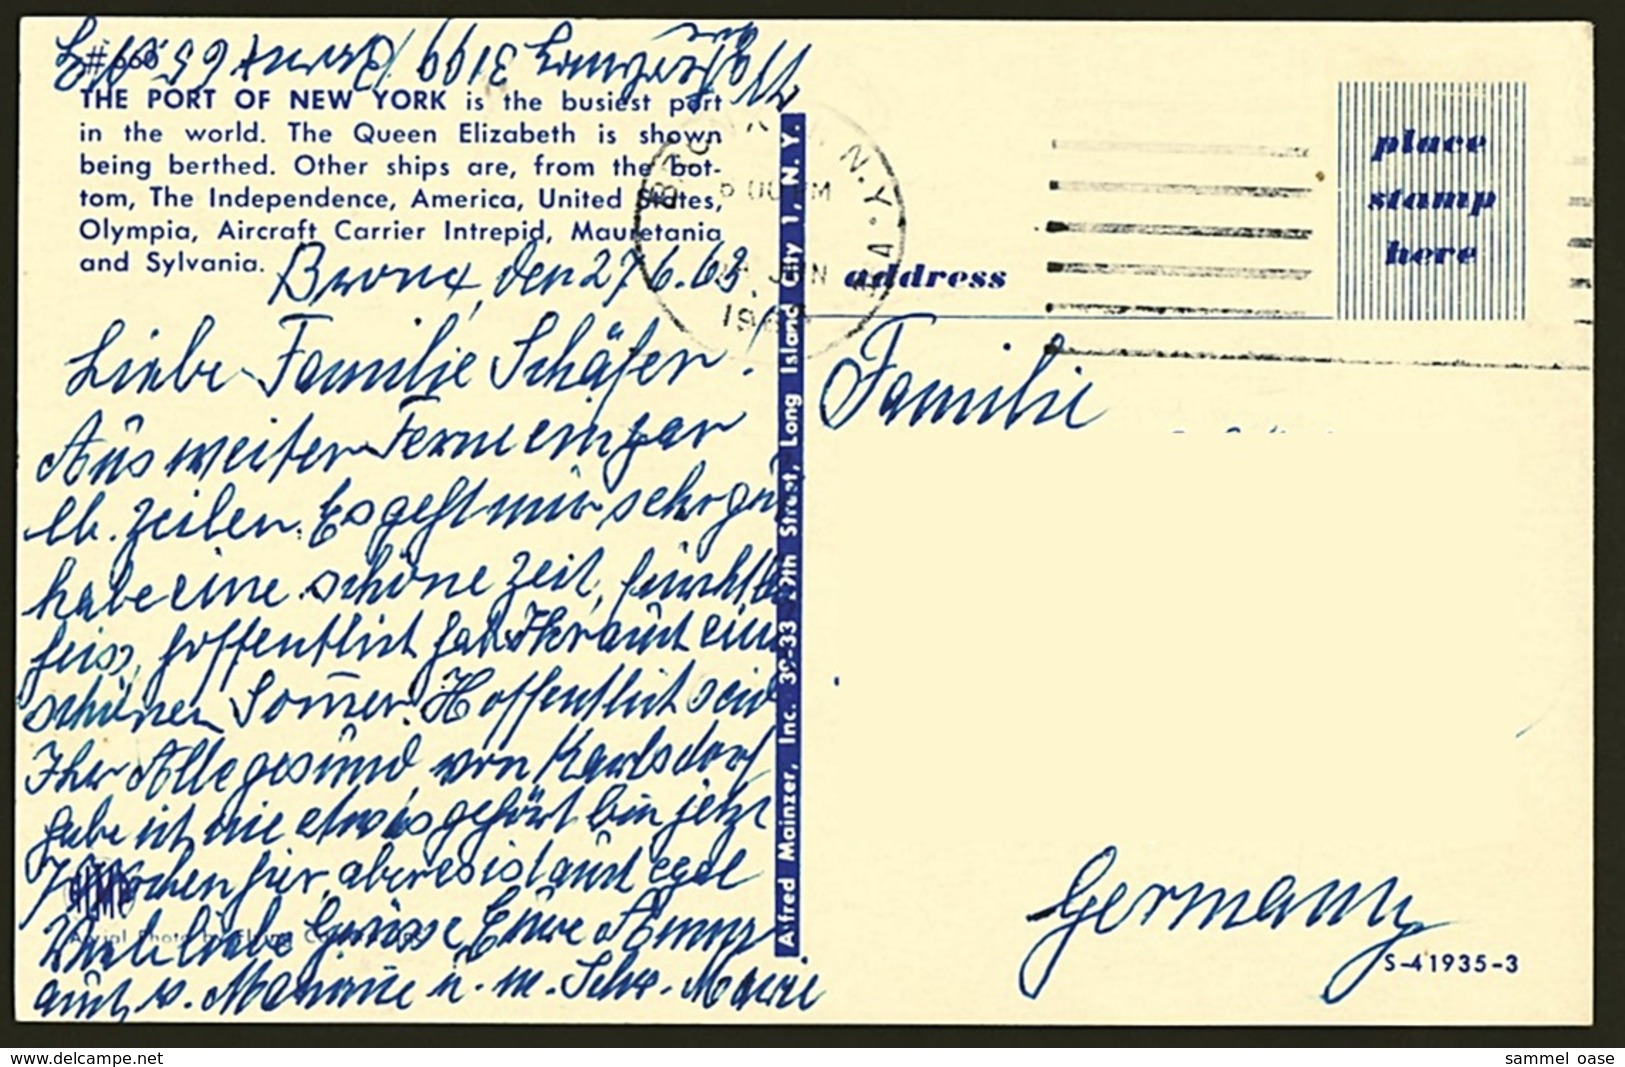 #668
THE PORT OF NEW YORK is the busiest port
in the world. The Queen Elizabeth is shown
being berthed. Other ships are, from the bot-
tom, The Independence, America, United States,
Olympia, Aircraft Carrier Intrepid, Mauretania
and Sylvania.
Bronx, den 27.6.63
Liebe Familie Schäfer!
Aus weiter Ferne ein par
lb. Zeilen. Es geht mir sehr gut
habe eine schöne Zeit, furchtb
heiss, hoffentlich habt Ihr auch ein
schönen Som̄er. Hoffentlich seid
Ihr Alle gesund, von Karlsdorf
habe ich nie etwas gehört bin jetzt
7 Wochen hier, aber es ist auch egal
Viele liebe Grüsse Eure Anny
auch v. u. m. Schw.
Aerial Photo by
Alfred Mainzer, Inc. 39-33 29th Street, Long Island City 1, N. Y.
BRONX N.Y.
JUN
address
place
stamp
here
Familie
Germany
S-41935-3
www.delcampe.net
sammel oase